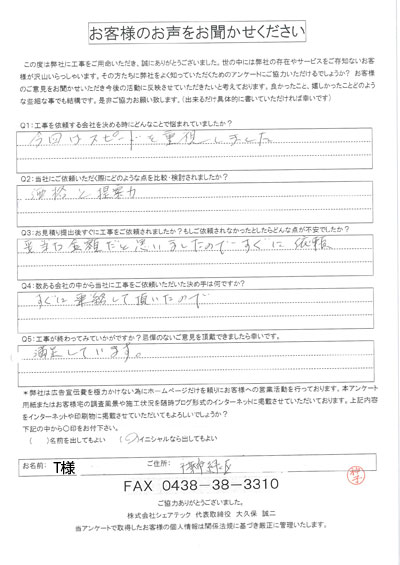 お客様のお声をお聞かせください
この度は弊社に工事をご用命いただき、誠にありがとうございました。世の中には弊社の存在やサービスをご存知ないお客
様が沢山いらっしゃいます。その方たちに弊社をよく知っていただくためのアンケートにご協力いただけるでしょうか? お客様
のご意見をお聞かせいただき今後の活動に反映させていただきたいと考えております。良かったこと、嬉しかったことどのよう
な些細な事でも結構です。是非ご協力お願い致します。(出来るだけ具体的に書いていただければ幸いです)
Q1:工事を依頼する会社を決める時にどんなことで悩まれていましたか?
今回はスピードを重視しました
Q2:当社にご依頼いただく際にどのような点を比較・検討されましたか?
価格と提案力
Q3:お見積り提出後すぐに工事をご依頼されましたか?もしご依頼されなかったとしたらどんな点が不安でしたか?
妥当な金額だと思いましたので すぐに依頼
Q4:数ある会社の中から当社に工事をご依頼いただいた決め手は何ですか?
すぐに連絡して頂いたので
Q5:工事が終わってみていかがですか?忌憚のないご意見を頂戴できましたら幸いです。
満足しています。
*弊社は広告宣伝費を極力かけない為にホームページだけを頼りにお客様への営業活動を行っております。本アンケート
用紙またはお客様宅の調査風景や施工状況を随時ブログ形式のインターネットに掲載させていただいております。上記内容
をインターネットや印刷物に掲載させていただいてもよろしいでしょうか?
下記の中から○印をお付下さい。
( )名前を出してもよい (○)イニシャルなら出してもよい
お名前: T様 ご住所:
FAX 0438-38-3310
ご協力ありがとうございました。
株式会社シェアテック 代表取締役 大久保 誠二
当アンケートで取得したお客様の個人情報は関係法規に基づき厳正に管理いたします。